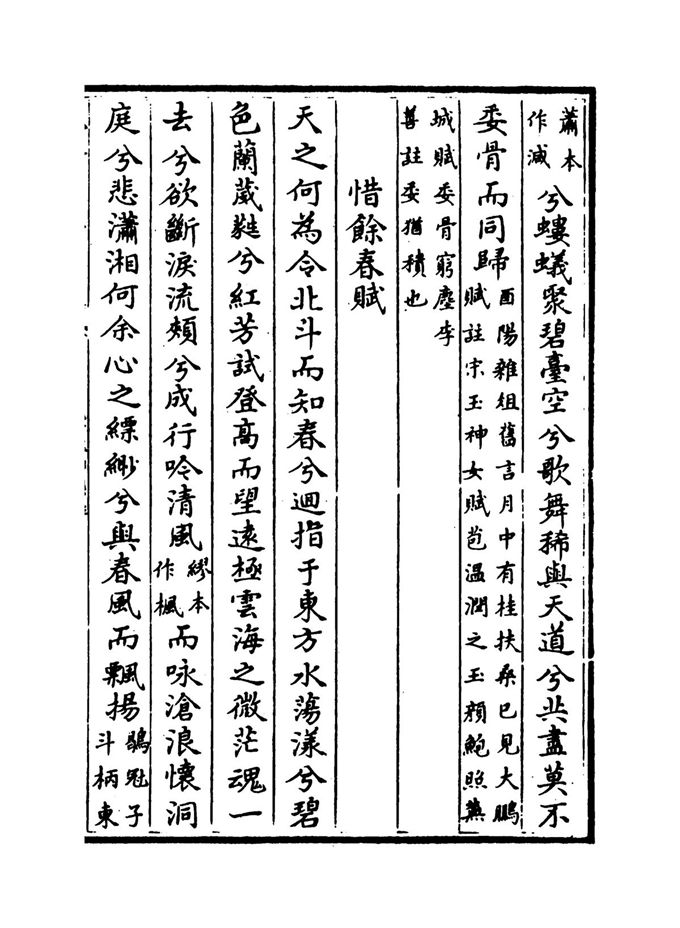 蕭本作減兮螻蟻聚碧臺空兮歌舞稀與天道兮共盡莫不
委骨而同歸酉陽雜俎舊言月中有桂扶桑已見大鵬賦註宋玉神女賦苞溫潤之玉顏鮑照蕪
城賦委骨窮塵李善註委猶積也
惜餘春賦
天之何為令北斗而知春兮迴指于東方水蕩漾兮碧
色蘭葳蕤兮紅芳試登高而望遠極雲海之微茫魂一
去兮欲斷淚流頰兮成行吟清風繆本作楓而咏滄浪懷洞
庭兮悲瀟湘何余心之縹緲兮與春風而飄揚鶡冠子斗柄東